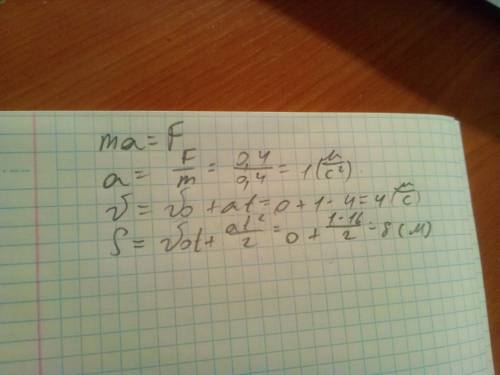 ma = F
a = F/m = 0,4/0,4 = 1 (м/с²)
v = v₀ + at = 0 + 1 · 4 = 4 (м/с)
S = v₀t + at²/2 = 0 + 1·16/2 = 8 (м)